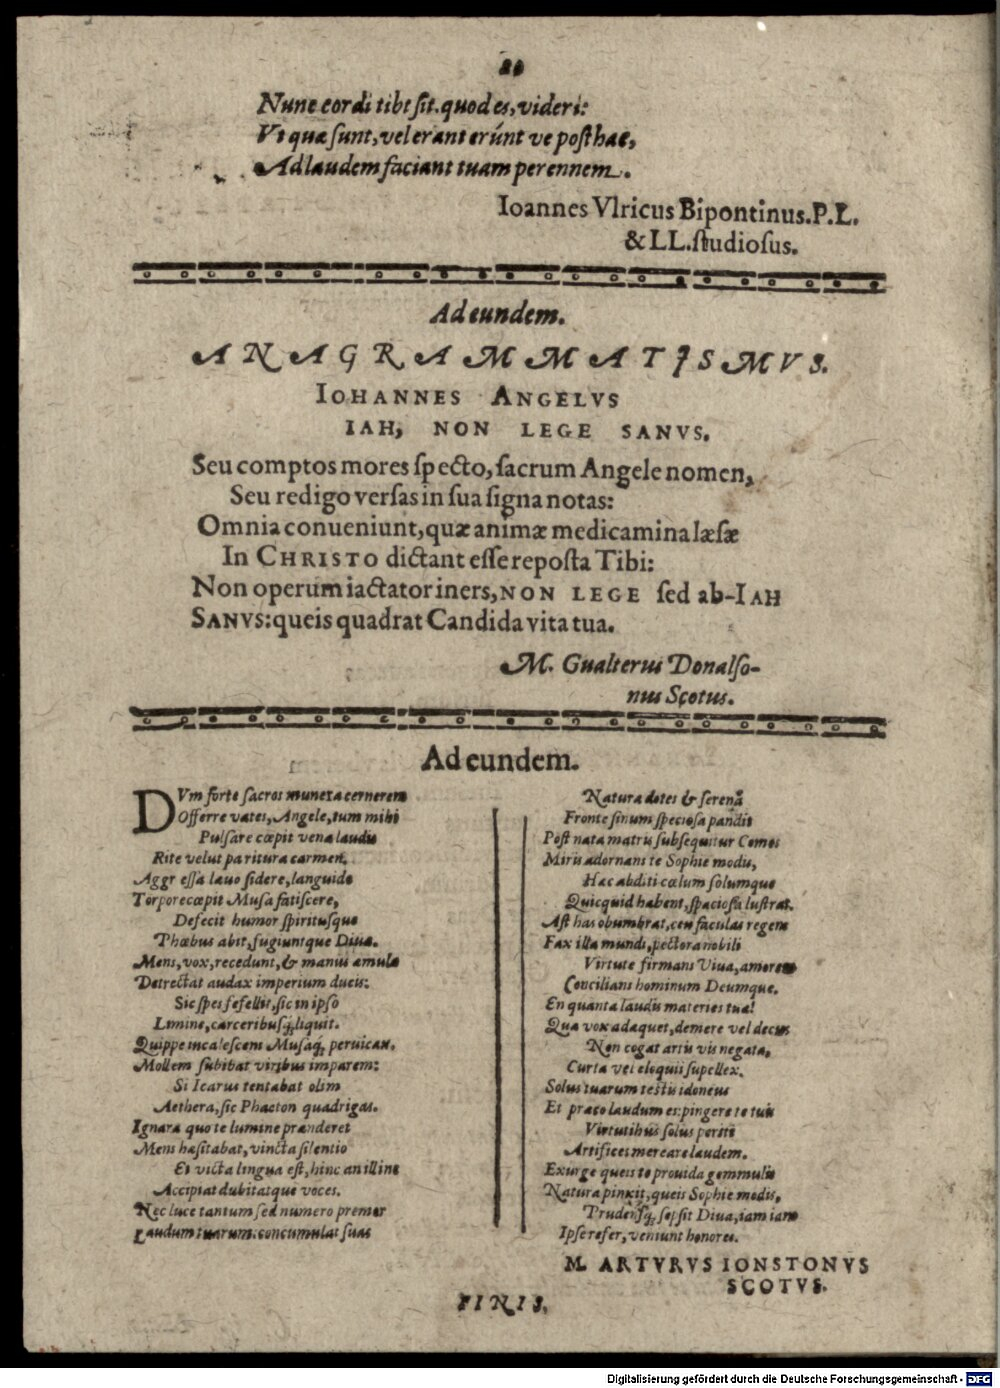 20
Nunc cordi tibi sit. quod es, videri:
Vt quæ sunt, vel erant erúnt ve posthac,
Ad laudem faciant tuam perennem.
Ioannes Vlricus Bipontinus. P. L.
& LL. studiosus.
Ad eundem.
ANAGRAMMATISMVS.
IOHANNES ANGELVS
IAH, NON LEGE SANVS.
Seu comptos mores specto, sacrum Angele nomen,
Seu redigo versas in sua signa notas:
Omnia conueniunt, quæ animæ medicamina læsæ
In CHRISTO dictant esse reposta Tibi:
Non operum iactator iners, NON LEGE sed ab-IAH
SANVS: queis quadrat Candida vita tua.
M. Gualterus Donalso-
nius Scotus.
Ad eundem.
DVm forte sacros munera cernerem
Offerre vates, Angele, tum mihi
Pulsare cœpit vena laudis
Rite velut paritura carmen.
Aggressa lævo sidere, languido
Torpore cœpit Musa fatiscere,
Defecit humor spiritusque
Phœbus abit, fugiuntque Diuæ.
Mens, vox, recedunt, & manus æmula
Detrectat audax imperium ducis:
Sic spes fefellit, sic in ipso
Limine, carceribusq; liquit.
Quippe incalescens Musaq; peruicax,
Mollem subibat viribus imparem:
Si Icarus tentabat olim
Aethera, sic Phaeton quadrigas.
Ignara quo te lumine prænderet
Mens hæsitabat, vincta silentio
Et victa lingua est, hinc an illinc
Accipiat dubitatque voces.
Nec luce tantum sed numero premor
Laudum tuarum: concumulat suas
Natura dotes & serenâ
Fronte sinum speciosa pandit
Post nata matris subsequitur Comes
Miris adornans te Sophie modis,
Hac abditi cœlum solumque
Quicquid habent, spaciosa lustrat.
Ast has obumbrat, ceu faculas regens
Fax illa mundi, pectora nobili
Virtute firmans Viua, amorem
Concilians hominum Deumque.
En quanta laudis materies tuæ!
Qua vox adæquet, demere vel decus
Non cogat artis vis negata,
Curta vel eloquii supellex.
Solus tuarum testis idoneus
Et præco laudum es: pingere te tuis
Virtutibus solus peritis
Artifices mereare laudem.
Exurge queis te prouida gemmulis
Natura pinxit, queis Sophie modis,
Prudensq; sepsit Diua, iam iam
Ipse refer, veniunt honores.
M. ARTVRVS IONSTONVS
SCOTVS.
FINIS.
Digitalisierung gefördert durch die Deutsche Forschungsgemeinschaft - DFG